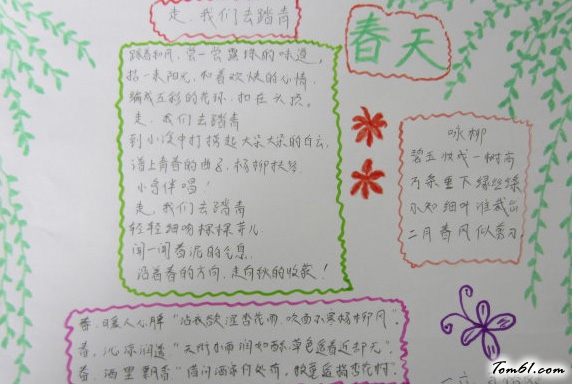 走、我们去踏青
春天
踏着和风,尝一尝露珠的味道,
掐一束阳光,和着欢快的心情
编成五彩的花环,扣在头顶。
走、我们去踏青
到小溪中打捞起大朵大朵的白云
谱上青春的曲子,杨柳扶
小鸟伴唱!
走、我们去踏青
轻轻细吻棵棵芽儿
闻一闻春泥的气息
沿着春的方向,走向秋的收获!
咏柳
碧玉妆成一树高
万条垂下绿丝绦
不知细叶谁裁出
二月春风似剪刀
春,暖人心脾"沾衣欲湿杏花雨,吹面不寒杨柳风"。
春,沁凉润透"天街小雨润如酥,草色遥看近却无"。
春,洒里飘香"借问酒家何处有,牧童遥指杏花村"。
Tom61.com